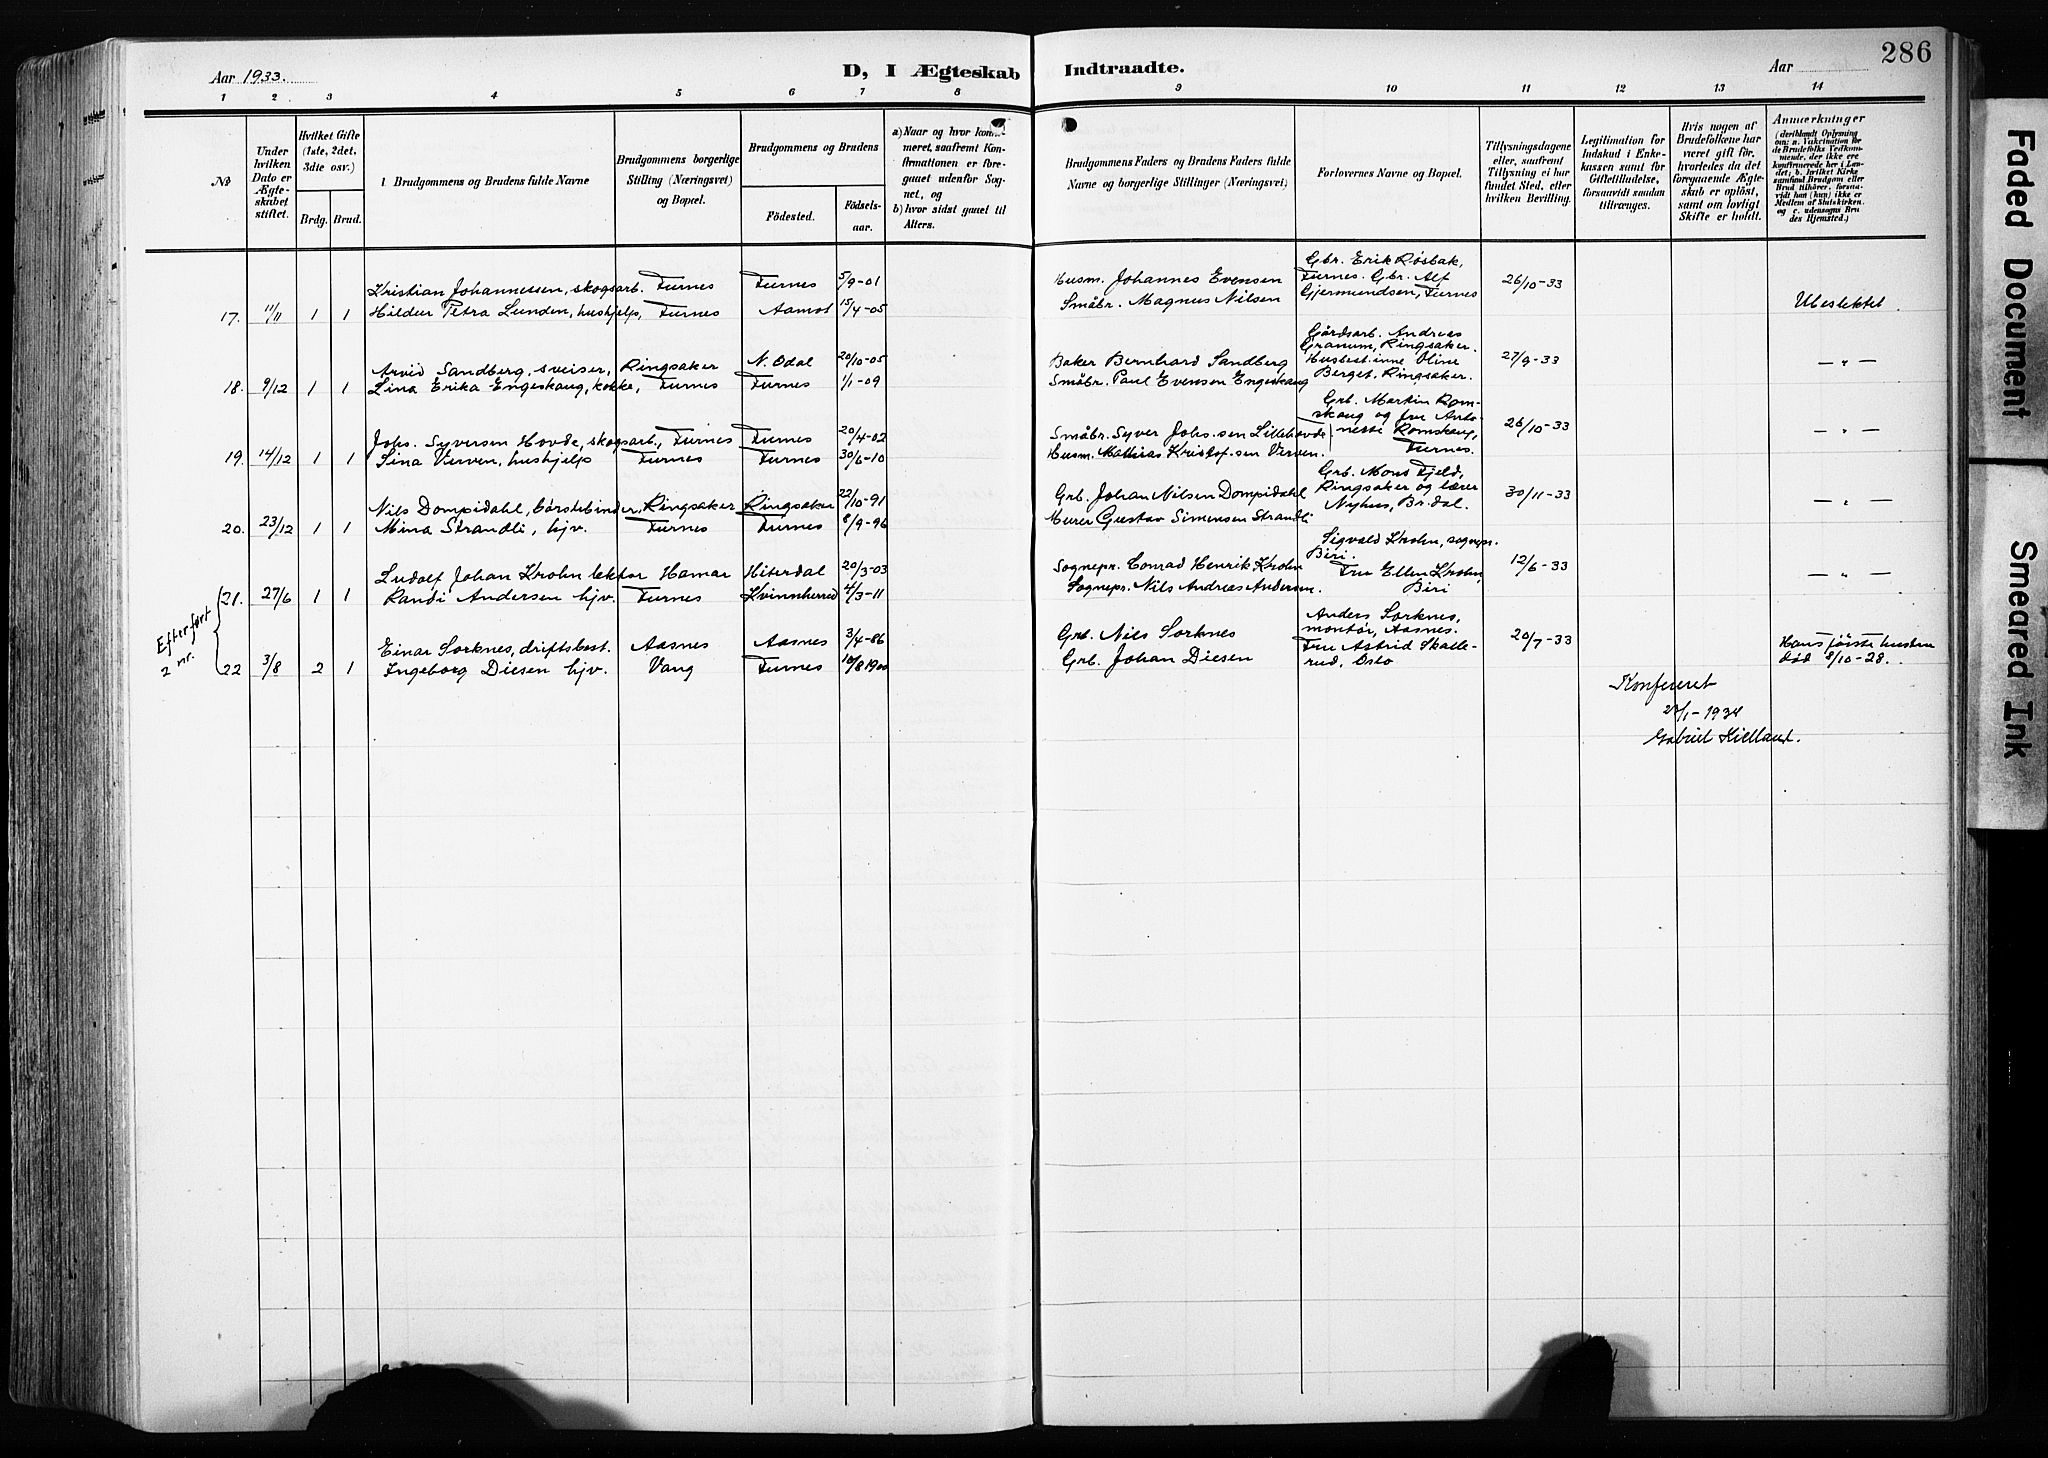 286
Aar 1933.
D, I Ægteskab Indtraadte.
Aar
1 2 3 4 5 6 7 8 9 10 11 12 13 14
No
Under hvilken Dato er Ægteskabet stiftet.
Hvilket Gifte (1ste, 2det, 3die osv.)
Brdg. Brud.
1. Brudgommens og Brudens fulde Navne
Brudgommens borgerlige Stilling (Næringsvei) og Bopæl.
Brudgommens og Brudens
Födested.
Födselsaar.
a) Naar og hvor konfirmeret, saafremt Konfirmationen er foregaaet udenfor Sognet, og
b) hvor sidst gaaet til Alters.
Brudgommens Faders og Brudens Faders fulde Navne og borgerlige Stillinger (Næringsvei)
Forlovernes Navne og Bopæl.
Tillysningsdagene eller, saafremt Tillysning ei har fundet Sted, efter hvilken Bevilling.
Legitimation for Indskud i Enkekassen samt for Giftetilladelse, forsaavidt saadan tiltrænges.
Hvis nogen af Brudefolkene har været gift för, hvorledes da det foregaaende Ægteskab er oplöst, samt om lovligt Skifte er holdt.
Anmærkninger
(deriblandt Oplysning om: a. Vakcination for de Brudefolks Vedkommende, der ikke ere konfirmerede her i Landet; b. hvilket Kirkesamfund Brudgom eller Brud tilhörer, forsaavidt han (hun) ikke er Medlem af Statskirken. og c. udensogns Brudes Hjemsted.)
17. 11/11 1 1
Kristian Johannessen, skogsarb. Furnes Furnes 5/9-01
Hildur Petra Lunden, hushjelp, Furnes Aamot 15/4-05
Husm. Johannes Evensen
Småbr. Magnus Nilsen
Gbr. Erik Røsbak,
Furnes. Gbr. Alf
Gjermundsen, Furnes
26/10-33
Ubeslektet
18. 9/12 1 1
Arvid Sandberg, sveiser, Ringsaker N. Odal 20/10-05
Lina Erika Engeskaug, kokke, Furnes Furnes 1/1-09
Baker Bernhard Sandberg
Småbr. Paul Evensen Engeskaug
Gårdsarb. Andreas
Granum, Ringsaker.
Husbest.inne Oline
Berget, Ringsaker.
27/9-33
— " —
19. 14/12 1 1
Johs. Syversen Hovde, skogsarb., Furnes Furnes 20/4-02
Sina Verven, hushjelp Furnes Furnes 30/6-10
Småbr. Syver Johs.sen Lillehovde
Husm. Mathias Kristof.sen Verven.
Grb. Martin Romskaug og fru Antonette Romskaug,
Furnes.
26/10-33
— " —
20. 23/12 1 1
Nils Dompidahl, børstebinder, Ringsaker Ringsaker 22/10-91
Mina Strandli, hjv. Furnes Furnes 8/9-96
Grb. Johan Nilsen Dompidahl
Murer Gustav Simensen Strandli
Grb. Mons Fjeld,
Ringsaker og lærer
Nyhus, Br.dal.
30/11-33
— " —
Efterført 2 nr.
21. 27/6 1 1
Ludolf Johan Krohn lektor Hamar Hiterdal 20/3-03
Randi Andersen hjv. Furnes Kvinnherred 4/3-11
Sognepr. Conrad Henrik Krohn
Sognepr. Nils Andreas Andersen.
Sigvald Krohn, sognepr.
Biri.
Fru Ellen Krohn,
Biri
12/6-33
— " —
22 3/8 2 1
Einar Sorknes, driftsbest. Aasnes Aasnes 3/4-86
Ingeborg Diesen hjv. Vang Furnes 10/8 1900
Grb. Nils Sorknes
Grb. Johan Diesen
Anders Sorknes,
montør, Aasnes.
Fru Astrid Skallerud, Oslo
20/7-33
Hans første hustru
død 8/10-28.
Konfereret
1934
Gabriel Kielland.
Faded Document
Smeared Ink